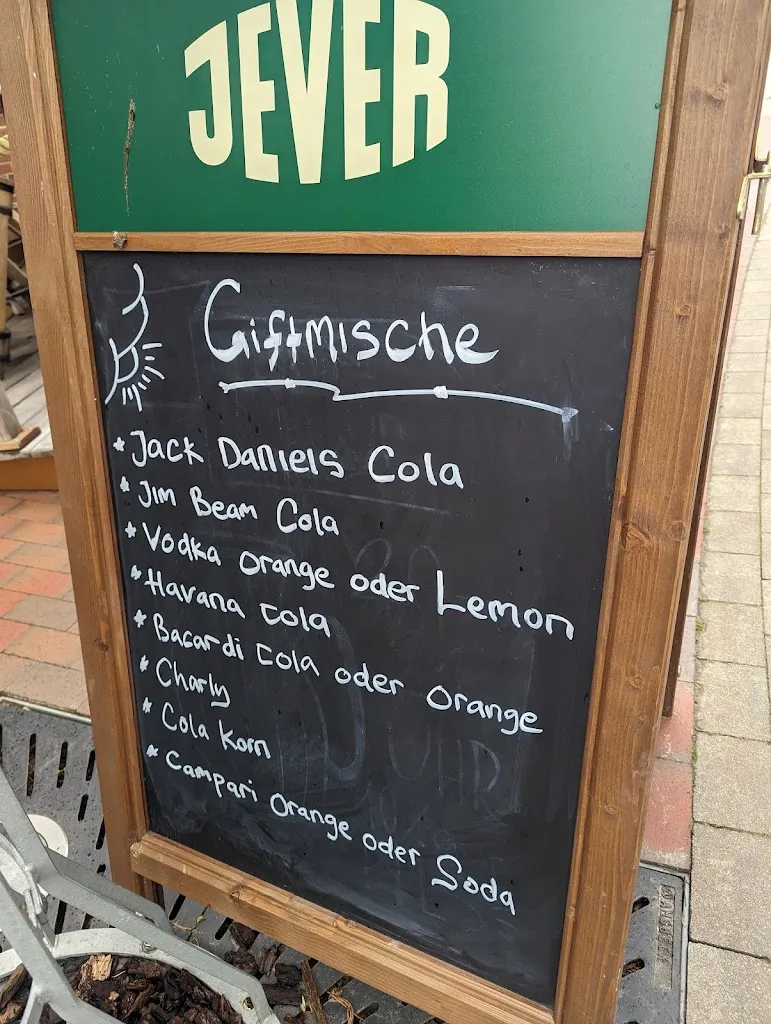 JEVER
Giftmische
* Jack Daniels Cola
* Jim Beam Cola
* Vodka orange oder Lemon
* Havana cola
* Bacardi cola oder orange
* Charly
* Cola Korn
* Campari Orange oder Soda
UHR